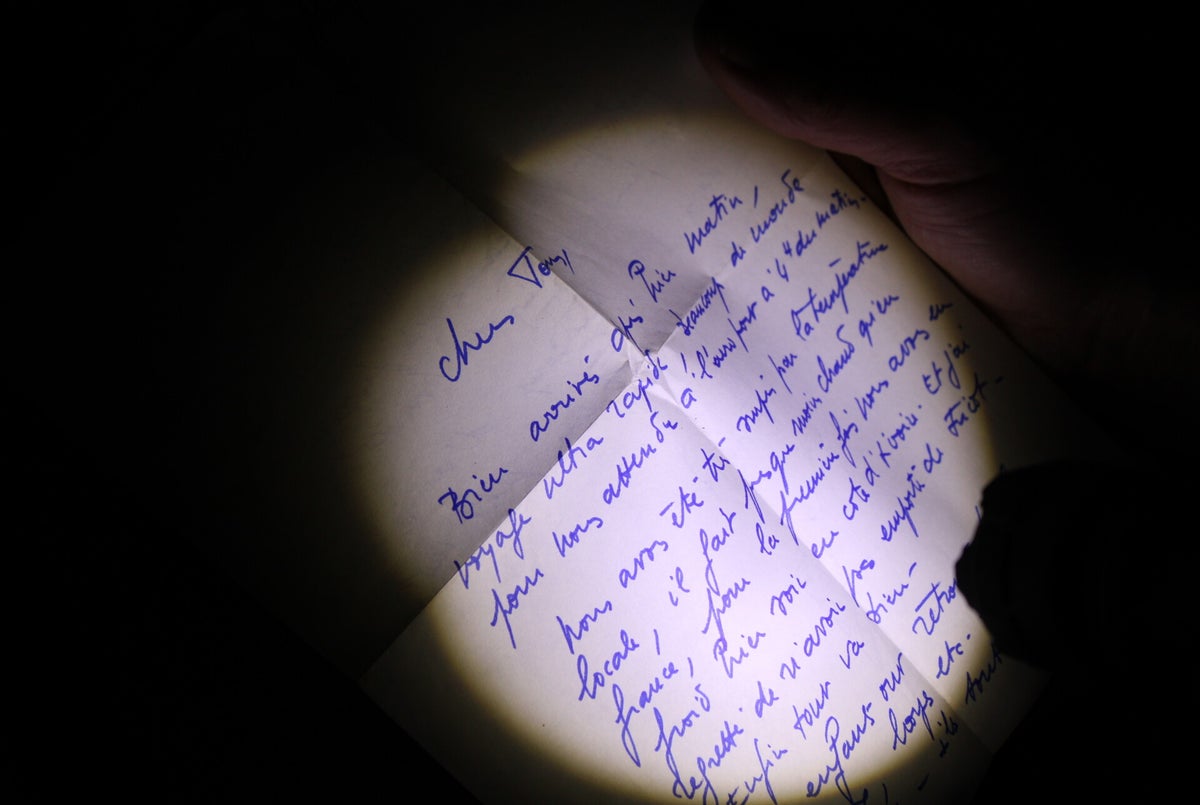 Chers Tous,
Bien arrivés ds hier matin,
voyage ultra rapide, beaucoup de monde
pour nous attendre à l'aéroport à 4H du matin.
nous avons été très surpris par la température
locale, il fait presque moins chaud qu'en
france, pour la première fois nous avons eu
froid hier soir en cote d'Ivoire. Et j'ai
regretté de n'avoir pas emporté de tricot.
Enfin tout va bien-
enfants ont retrou
boys etc.
ils sont